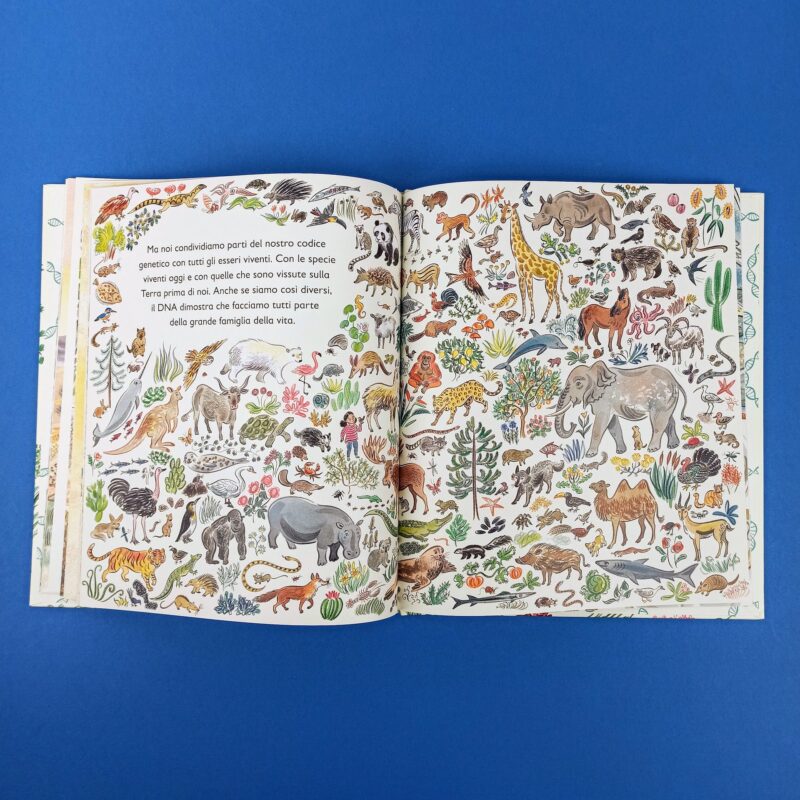 Ma noi condividiamo parti del nostro codice
genetico con tutti gli esseri viventi. Con le specie
viventi oggi e con quelle che sono vissute sulla
Terra prima di noi. Anche se siamo così diversi,
il DNA dimostra che facciamo tutti parte
della grande famiglia della vita.